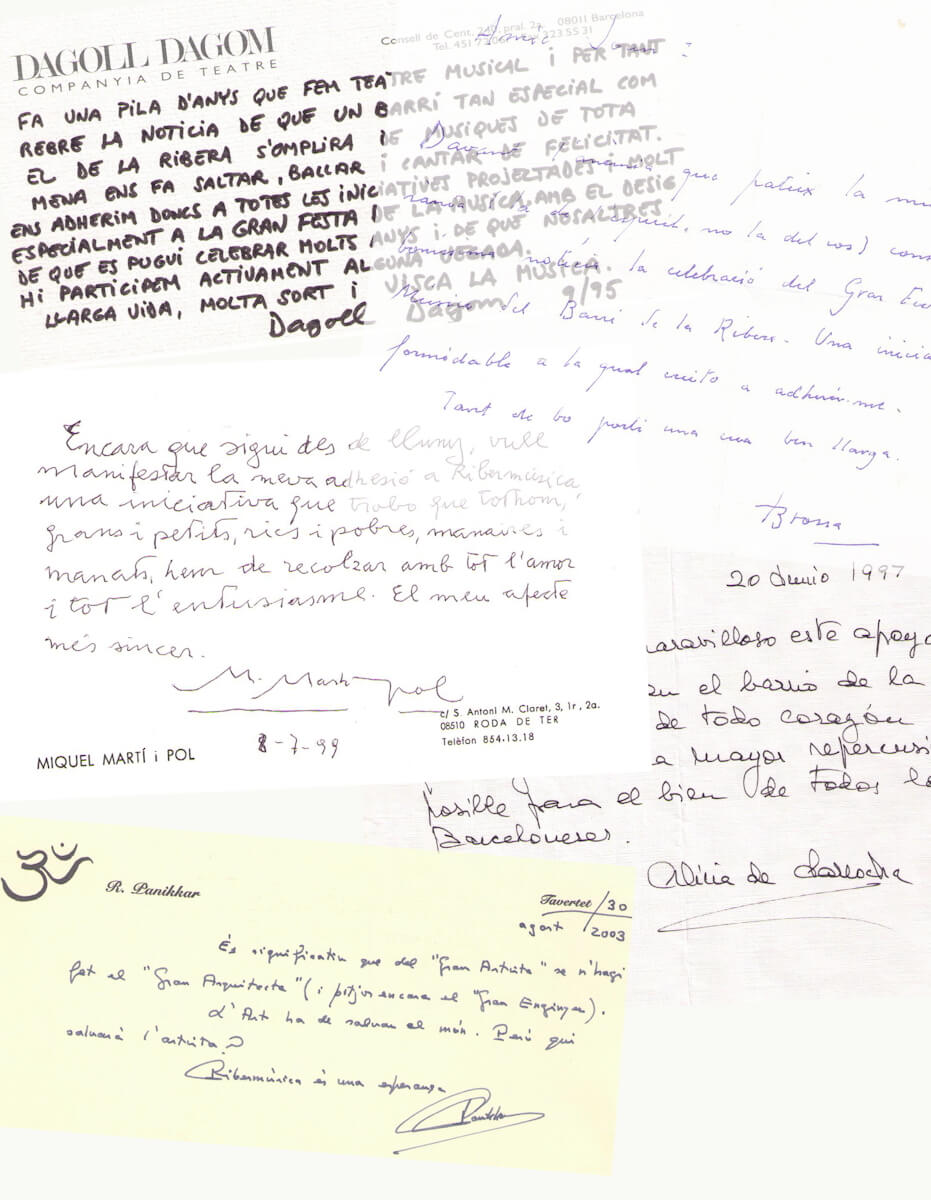 DAGOLL DAGOM
COMPANYIA DE TEATRE
Consell de Cent, 240, pral. 2a. 08011 Barcelona
FA UNA PILA D'ANYS QUE FEM TEATRE MUSICAL I PER TANT
REBRE LA NOTICIA DE QUE UN BARRI TAN ESPECIAL COM
EL DE LA RIBERA S'OMPLIRÀ DE MUSIQUES DE TOTA
MENA ENS FA SALTAR, BALLAR I CANTAR DE FELICITAT.
ENS ADHERIM DONCS A TOTES LES INICIATIVES PROJECTADES I MOLT
ESPECIALMENT A LA GRAN FESTA DE LA MUSICA, AMB EL DESIG
DE QUE ES PUGUI CELEBRAR MOLTS ANYS I DE QUE NOSALTRES
HI PARTICIPEM ACTIVAMENT ALGUNA VEGADA.
LLARGA VIDA, MOLTA SORT I VISCA LA MUSICA.
Dagoll Dagom 9/95
que pateix la
no la del cos)
notícia la celebració del Gran
Músic del Barri de la Ribera. Una
formidable a la qual cuito a adherir-me.
Tant de bo porti una cua ben llarga.
Brossa
Encara que sigui des de lluny, vull
manifestar la meva adhesió a Ribermúsica
una iniciativa que trobo que tothom,
grans i petits, rics i pobres, manaires i
manats, hem de recolzar amb tot l'amor
i tot l'entusiasme. El meu afecte
més sincer.
M. Martí Pol
MIQUEL MARTÍ i POL
8-7-99
c/ S. Antoni M. Claret, 3, 1r, 2a.
08510 RODA DE TER
Telèfon 854.13.18
20 Junio 1997
aravilloso este apoyo
en el barrio de la
de todo corazón
a mayor repercusi
posible para el bien de todos lo
Barceloneses.
Alicia de Larrocha
ॐ
R. Panikkar
Tavertet/30
agost/2003
És significatiu que del "Gran Artista" se n'hagi
fet el "Gran Arquitecte" (i pitjor encara el "Gran Enginyer).
L'Art ha de salvar el món. Però qui
salvarà l'artista?
Ribermúsica és una esperança
Panikkar